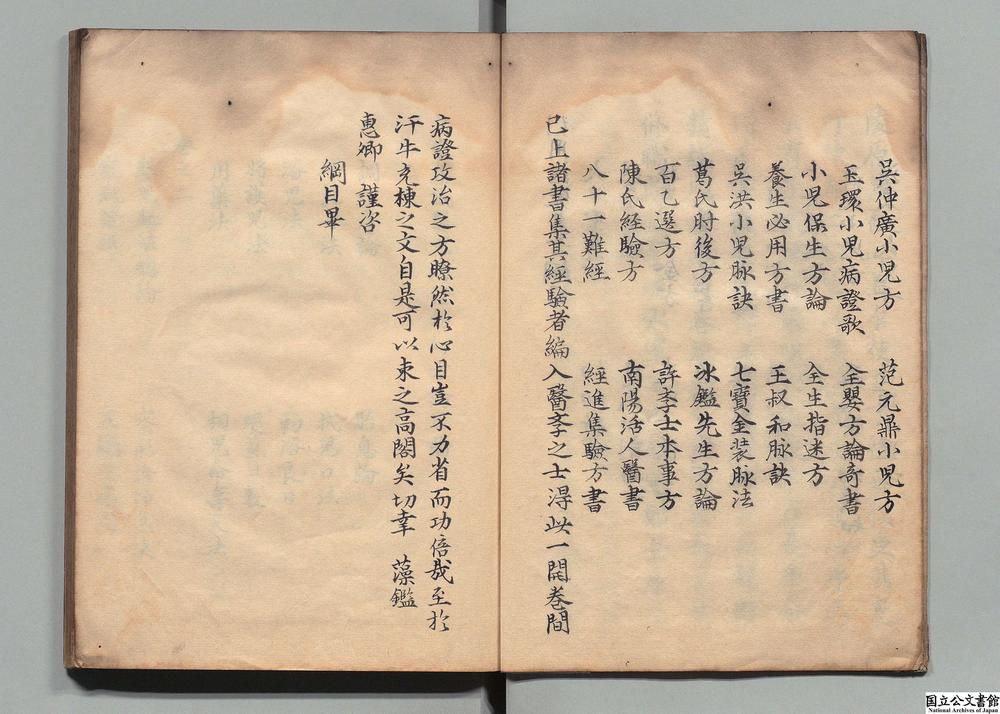 吳仲廣小児方　范元鼎小児方
玉環小児病證歌　全嬰方論奇書
小児保生方論　全生指迷方
養生必用方書　王叔和脉訣
吳洪小児脉訣　七寳金装脉法
葛氏肘後方　冰鑑先生方論
百乙選方　許學士本事方
陳氏經驗方　南陽活人醫書
八十一難經　經進集驗方書
已上諸書集其經驗者編入醫學之士淂此一開卷間
病證攻治之方瞭然於心目豈不力省而功倍哉至於
汗牛充棟之文自是可以束之高閣矣切幸　藻鑑
惠卿　謹咨
綱目畢
国立公文書館
National Archives of Japan